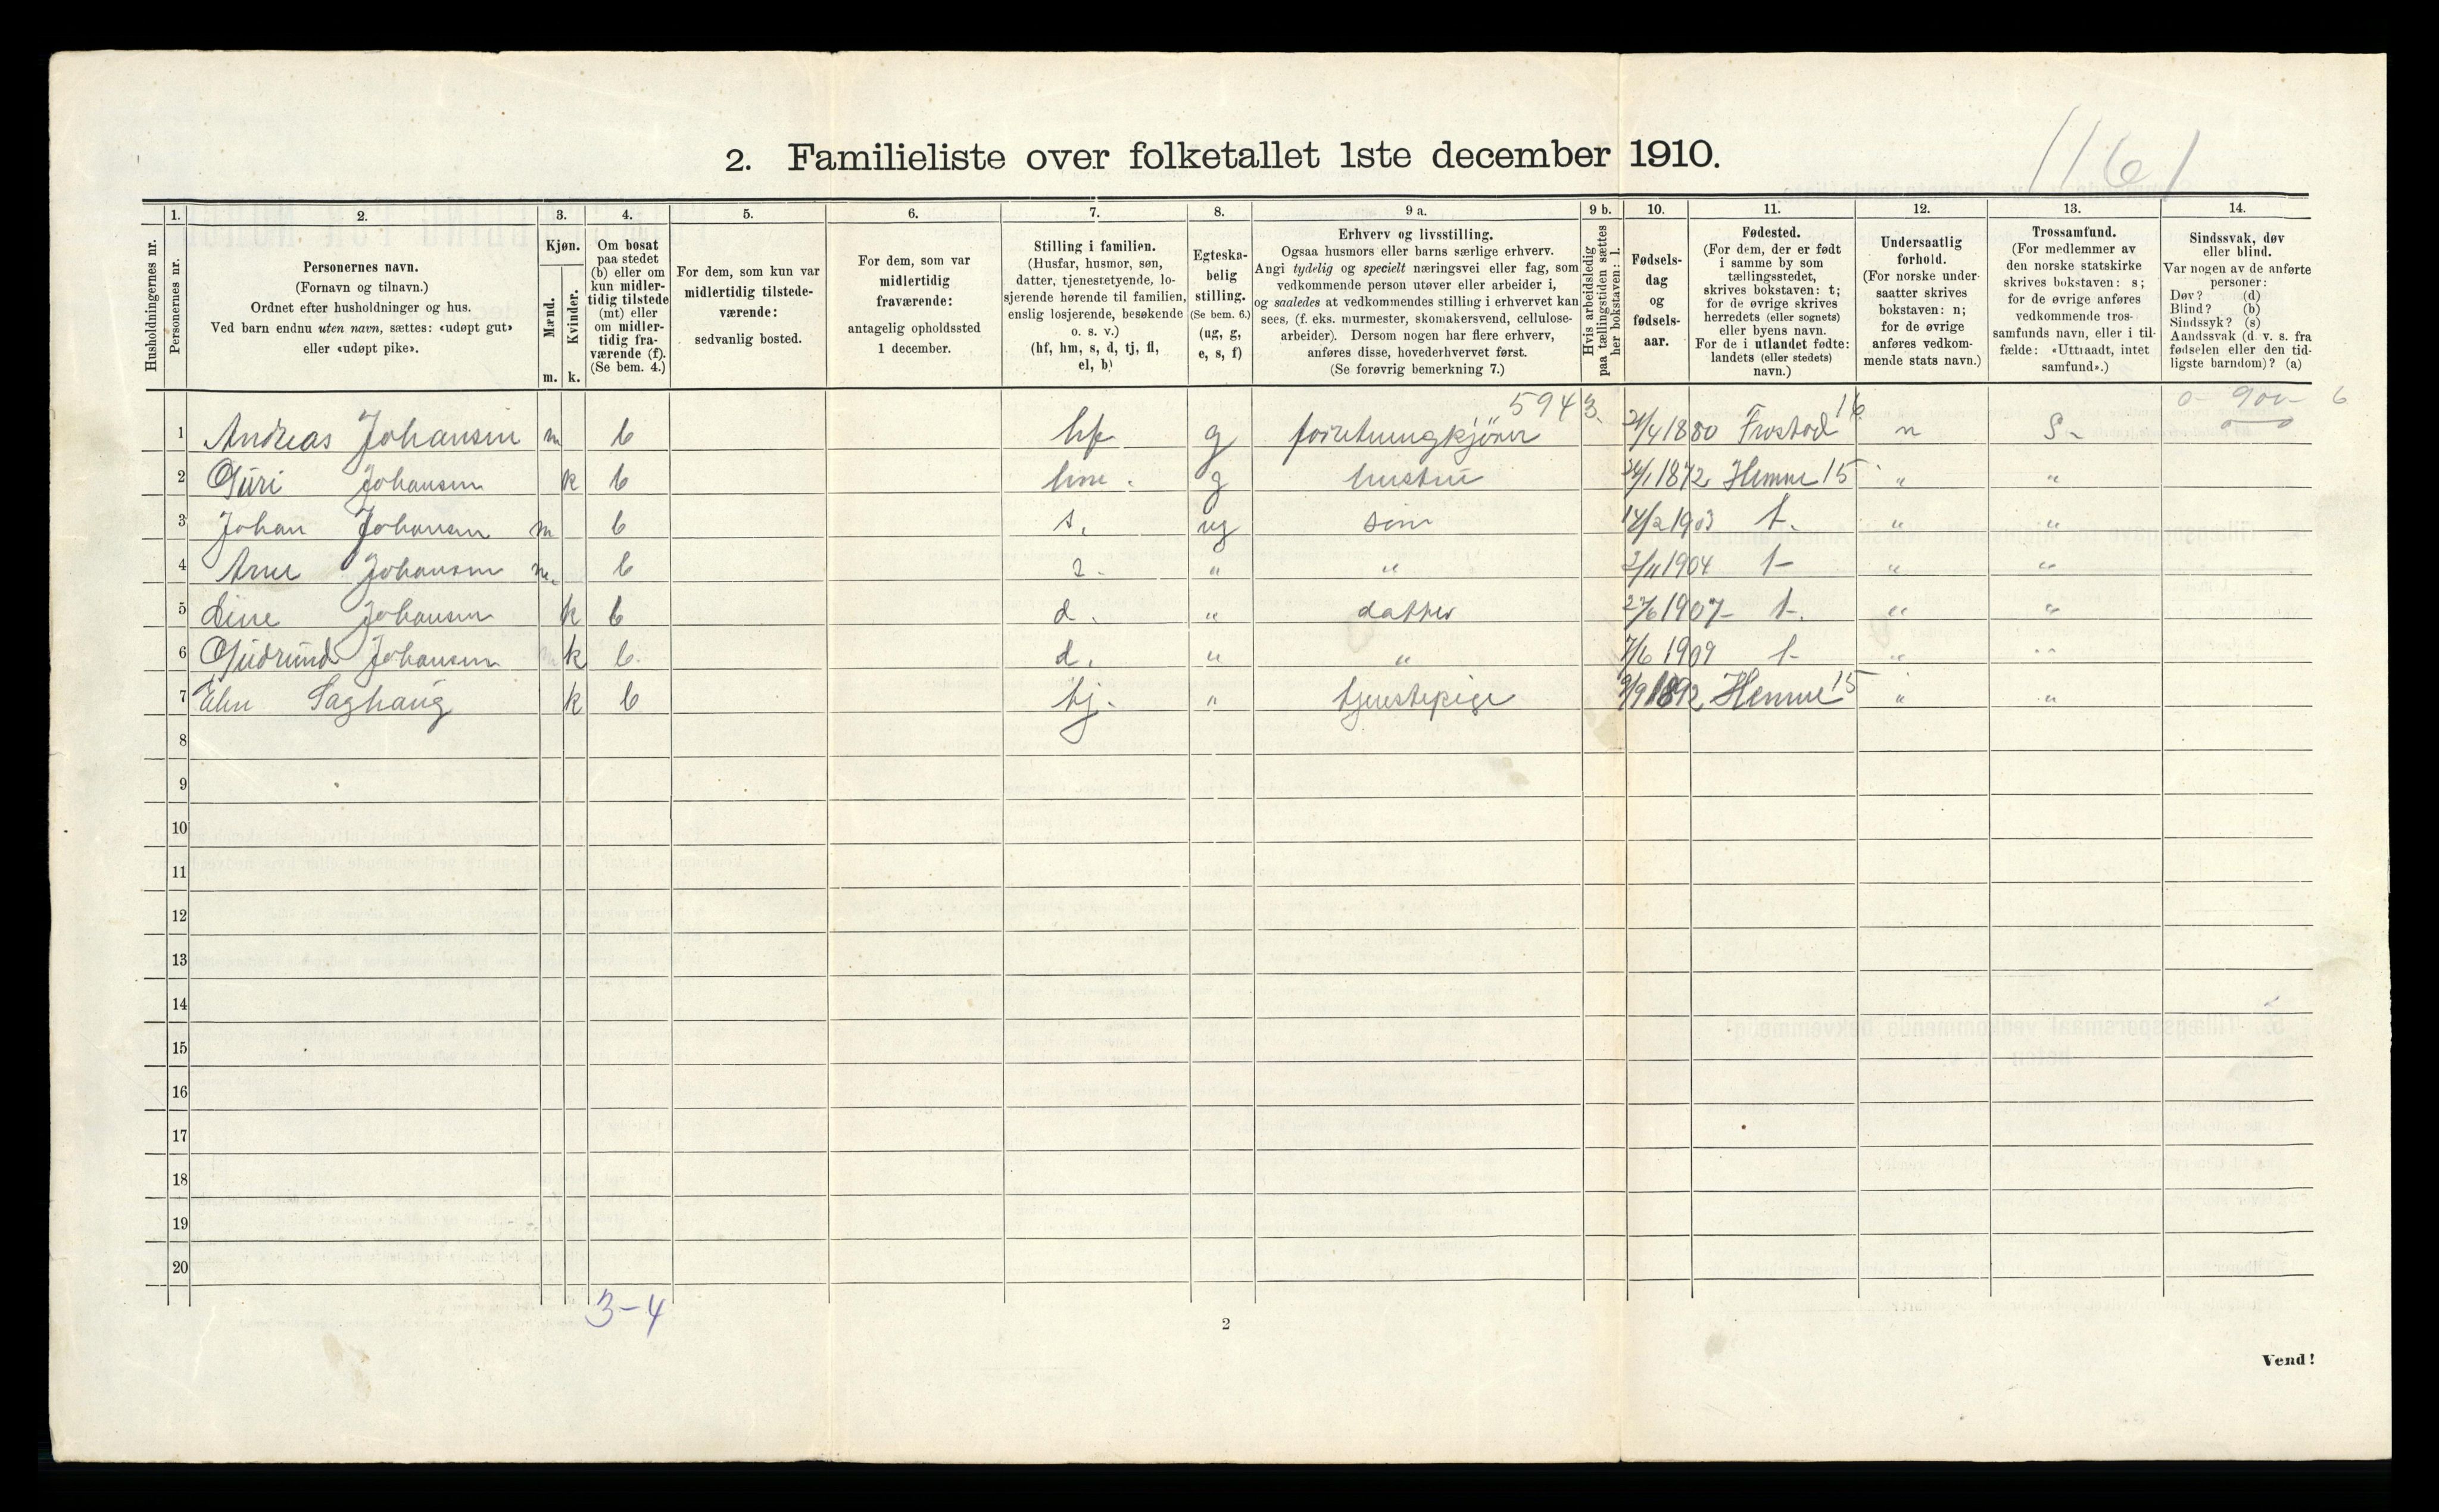 1161
2. Familieliste over folketallet 1ste december 1910.
1. 2. 3. 4. 5. 6. 7. 8. 9 a. 9 b. 10. 11. 12. 13. 14.
Husholdningernes nr.
Personernes nr.
Personernes navn.
(Fornavn og tilnavn.)
Ordnet efter husholdninger og hus.
Ved barn endnu uten navn, sættes: «udøpt gut»
eller «udøpt pike».
Kjøn.
Mænd.
Kvinder.
m. k.
Om bosat
paa stedet
(b) eller om
kun midler-
tidig tilstede
(mt) eller
om midler-
tidig fra-
værende (f).
(Se bem. 4.)
For dem, som kun var
midlertidig tilstede-
værende:
sedvanlig bosted.
For dem, som var
midlertidig
fraværende:
antagelig opholdssted
1 december.
Stilling i familien.
(Husfar, husmor, søn,
datter, tjenestetyende, lo-
sjerende hørende til familien,
enslig losjerende, besøkende
o. s. v.)
(hf, hm, s, d, tj, fl,
el, b)
Egteska-
belig
stilling.
(Se bem. 6.)
(ug, g,
e, s, f)
Erhverv og livsstilling.
Ogsaa husmors eller barns særlige erhverv.
Angi tydelig og specielt næringsvei eller fag, som
vedkommende person utøver eller arbeider i,
og saaledes at vedkommendes stilling i erhvervet kan
sees, (f. eks. murmester, skomakersvend, cellulose-
arbeider). Dersom nogen har flere erhverv,
anføres disse, hovederhvervet først.
(Se forøvrig bemerkning 7.)
Hvis arbeidsledig
paa tællingstiden sættes
her bokstaven: l.
Fødsels-
dag
og
fødsels-
aar.
Fødested.
(For dem, der er født
i samme by som
tællingsstedet,
skrives bokstaven: t;
for de øvrige skrives
herredets (eller sognets)
eller byens navn.
For de i utlandet fødte:
landets (eller stedets)
navn.)
Undersaatlig
forhold.
(For norske under-
saatter skrives
bokstaven: n;
for de øvrige
anføres vedkom-
mende stats navn.)
Trossamfund.
(For medlemmer av
den norske statskirke
skrives bokstaven: s;
for de øvrige anføres
vedkommende tros-
samfunds navn, eller i til-
fælde: «Uttraadt, intet
samfund».)
Sindssvak, døv
eller blind.
Var nogen av de anførte
personer:
Døv? (d)
Blind? (b)
Sindssyk? (s)
Aandssvak (d. v. s. fra
fødselen eller den tid-
ligste barndom)? (a)
5943. 16 0- 900- 6
1 Andreas Johansen m b hf g 1880 n S-
2 Guri Johansen k b hm. g hustru 1872 Hemne 15 " "
3 Johan Johansen m b s. ug søn 14/2 1903 t. " "
4 Arne Johansen m. b s. " " 2/11 1904 t- " "
5 Line Johansen k b d. " datter 27/6 1907- t- " "
6 Gudrund Johansen k b. d. " " 7/6 1909 t- " "
7 Elen Saghaug k b tj. " tjenestepige 9/9 1892 Hemne 15 " "
8
9
10
11
12
13
14
15
16
17
18
19
20
3-4
2
Vend!